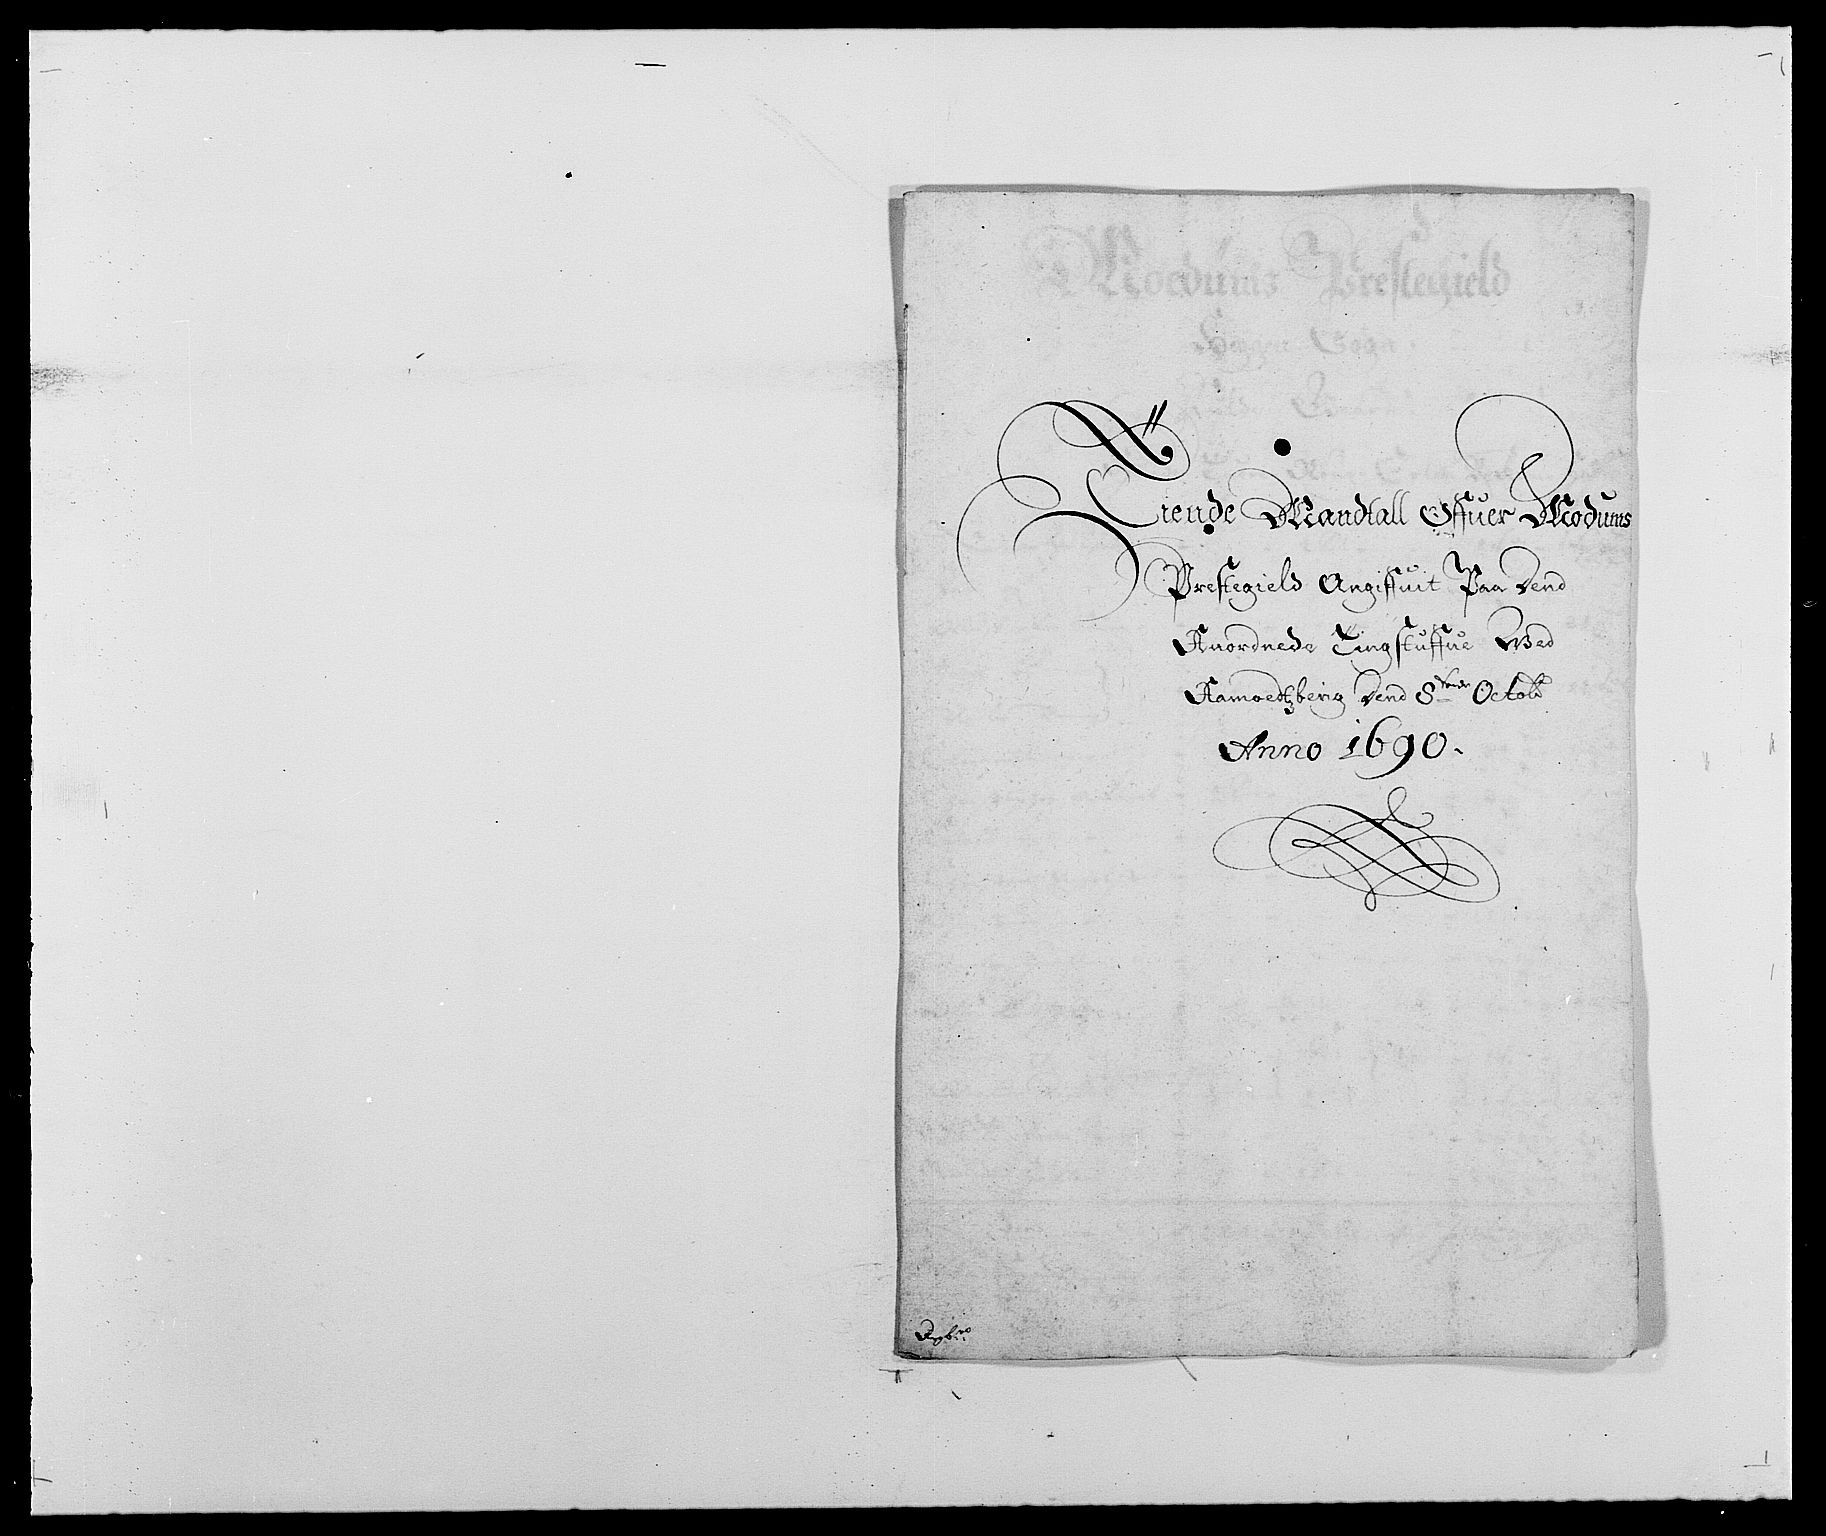 Tiende Mandtall Offuer Modums
Prestegield Angiffuit Paa dend
Anordnede Tingstuffue Wed
Ramoedtzberig dend 8 Octob
Anno 1690.